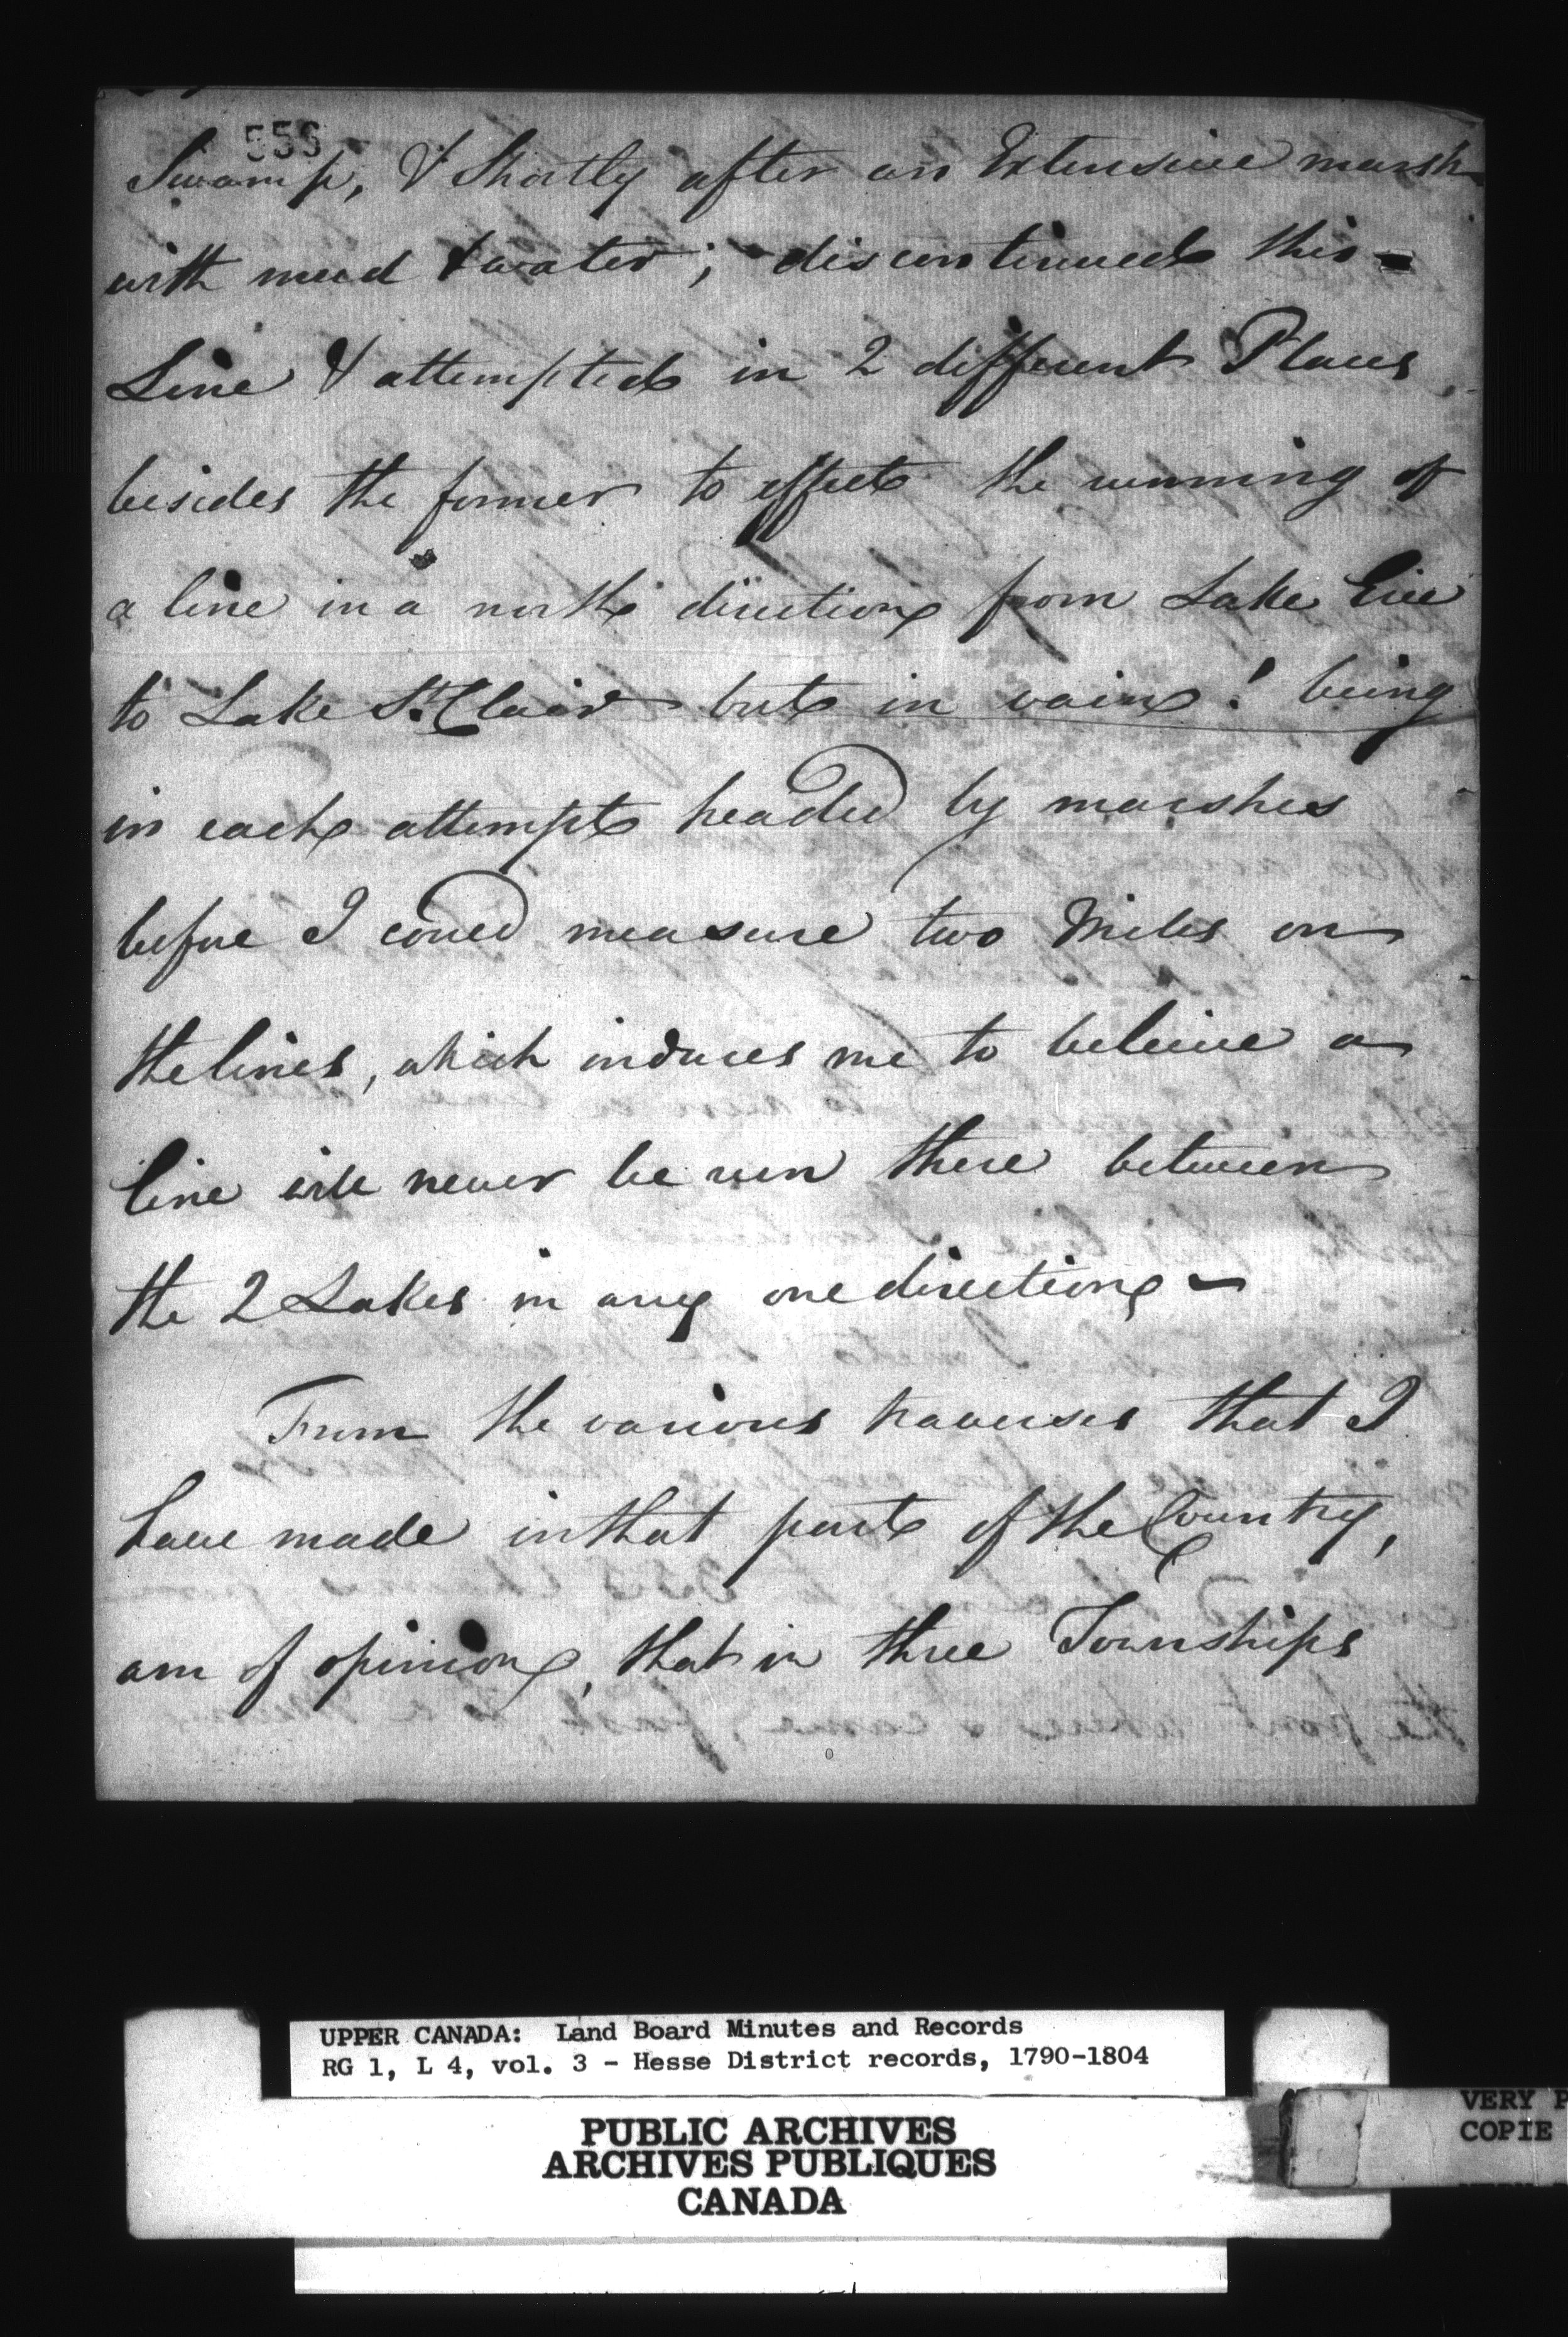 556
Swamp, & Shortly after an Extensive marsh
with mud & water; discontinued this -
Line & attempted in 2 different Places
besides the former to effect the running of
a line in a north direction from Lake Erie
to Lake St. Clair but in vain! being
in each attempt headed by marshes
before I coued measure two Miles on
the lines, which induces me to beleive a
line will never be run there between
the 2 Lakes in any one direction -
From the various traverses that I
have made in that part of the Country,
am of opinion, that in three Townships
UPPER CANADA: Land Board Minutes and Records
RG 1, L 4, vol. 3 - Hesse District records, 1790-1804
PUBLIC ARCHIVES
ARCHIVES PUBLIQUES
CANADA
VERY P
COPIE